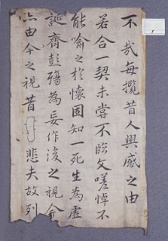 不哉每攬昔人興感之由
若合一契未嘗不臨文嗟悼不
能喻之於懷固知一死生為虛
誕齊彭殤為妄作後之視今
亦由今之視昔悲夫故列